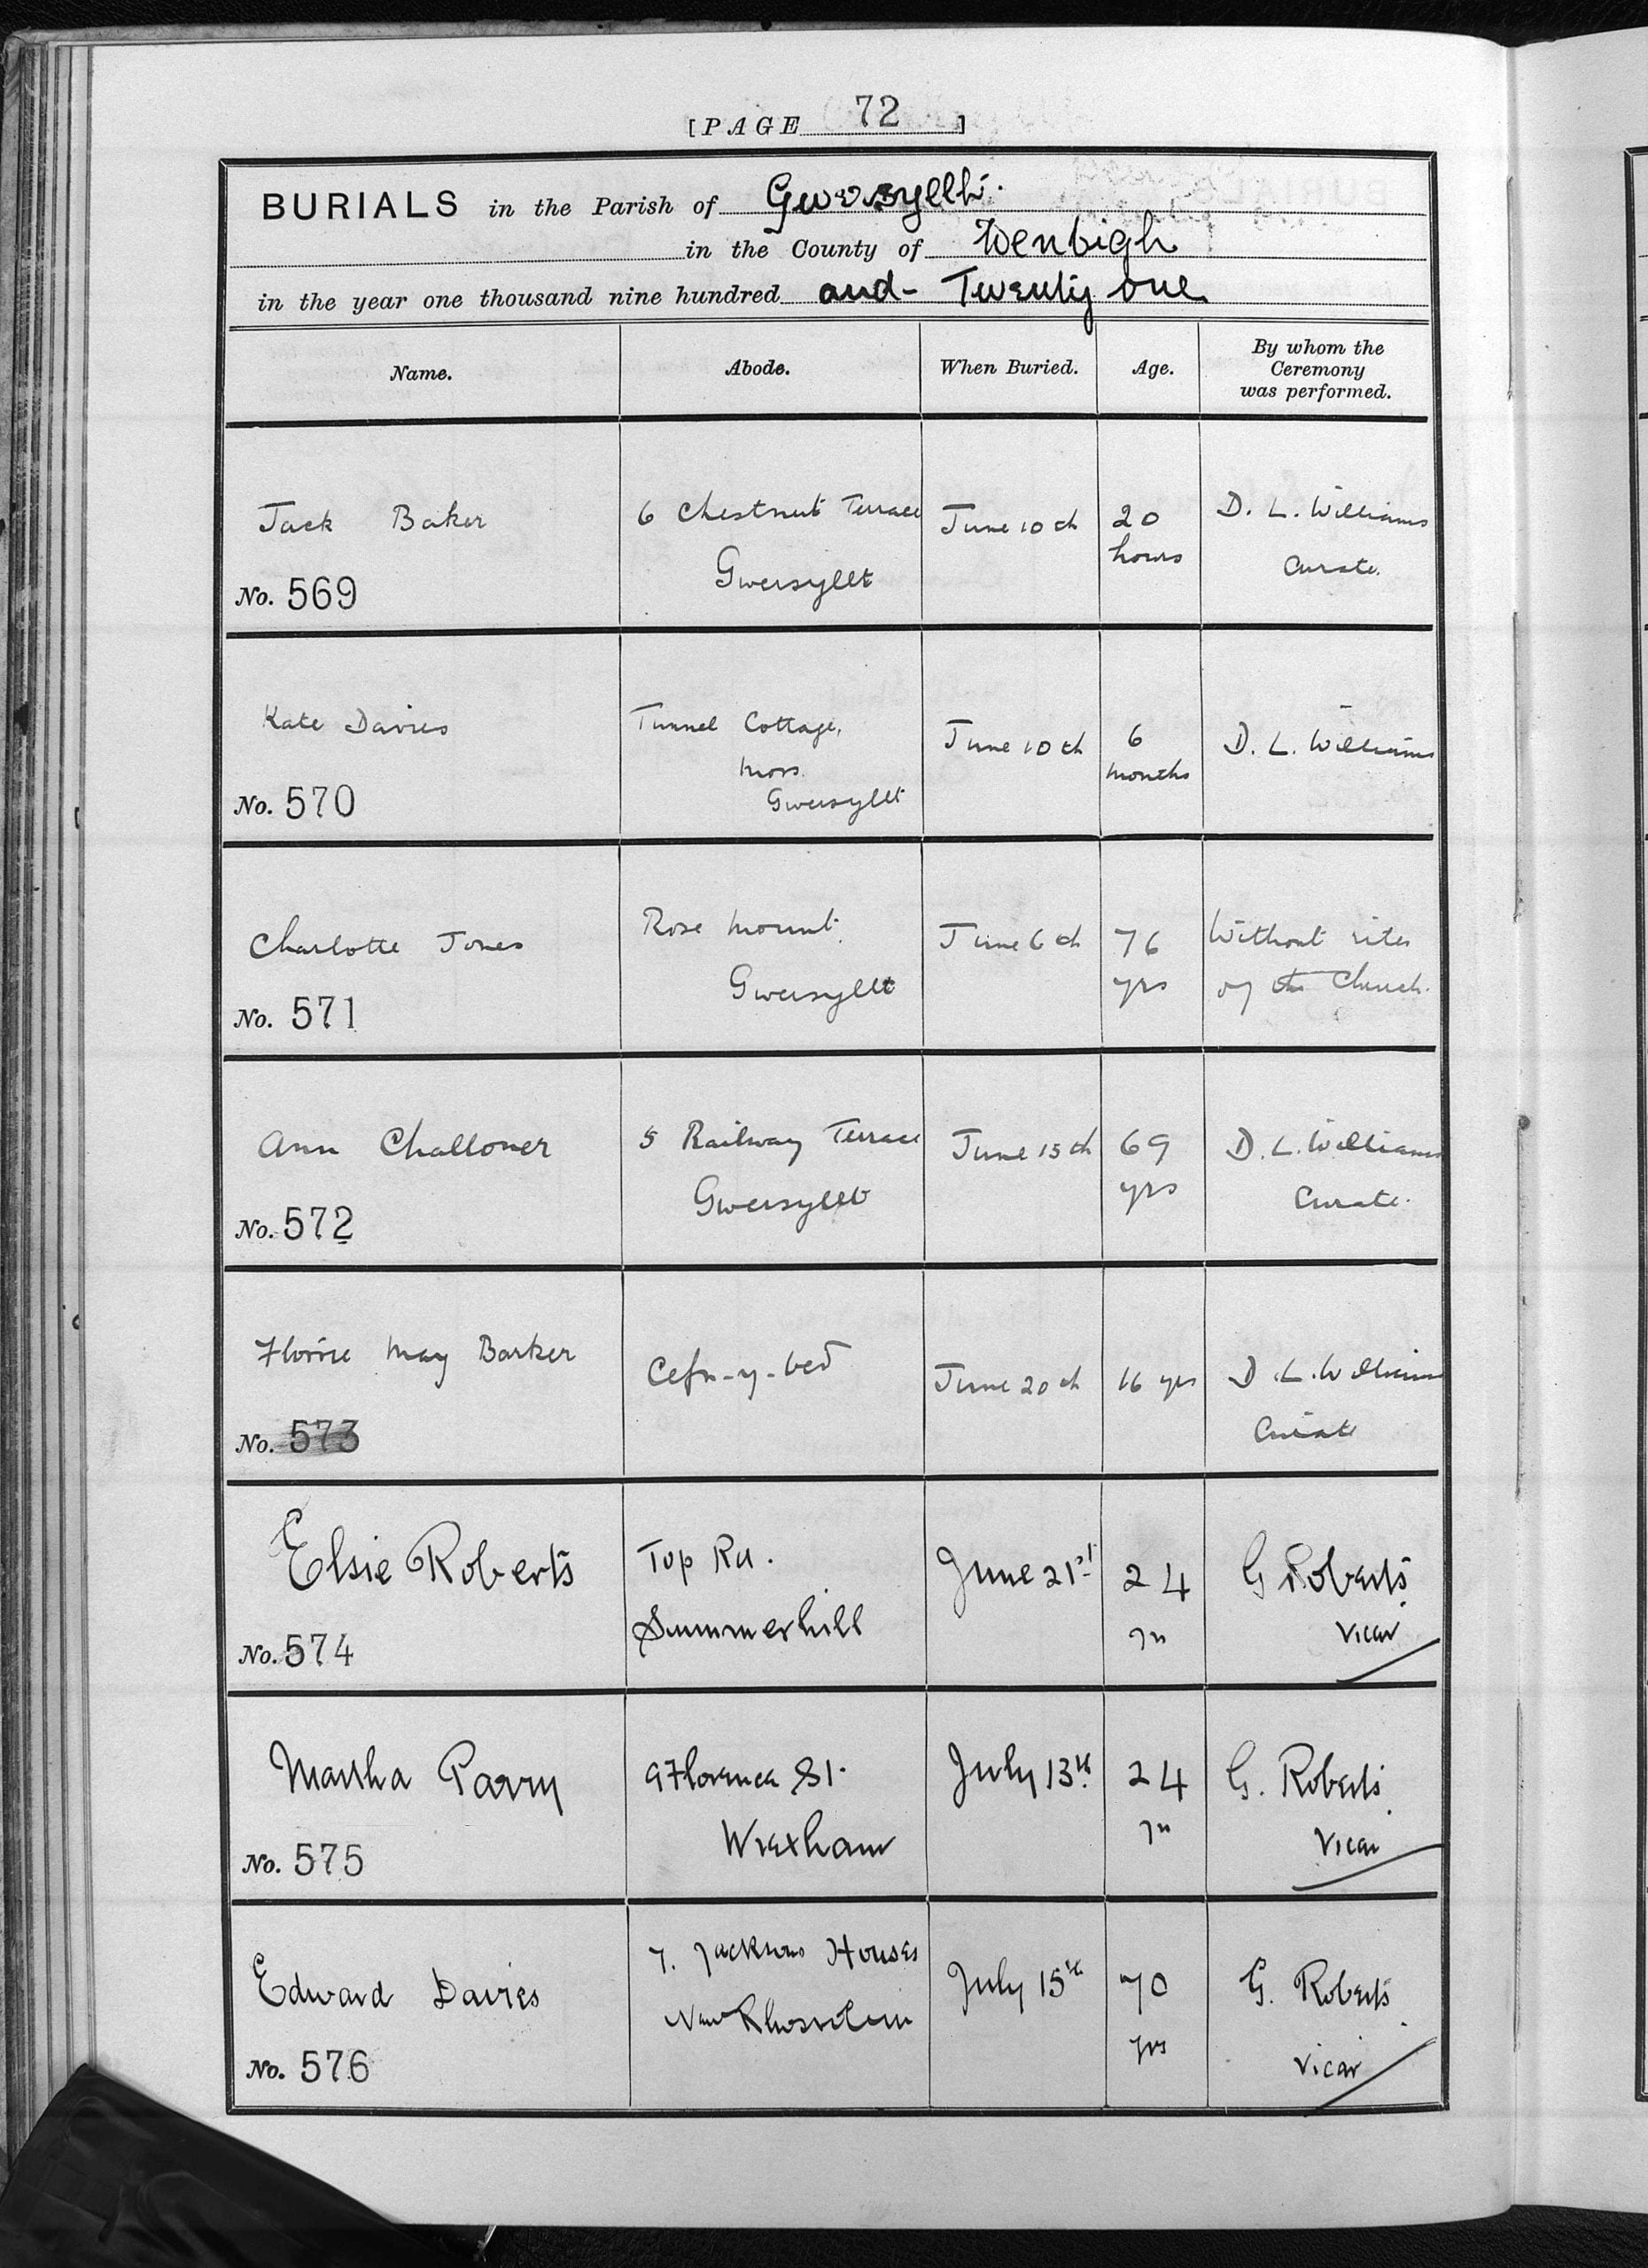 [PAGE 72 ]
BURIALS in the Parish of Gwersyllt.
in the County of Denbigh
in the year one thousand nine hundred and - Twenty one
Name. Abode. When Buried. Age. By whom the Ceremony was performed.
Jack Baker 6 Chestnut Terrace June 10th 20 D. L. Williams
Gwersyllt hours Curate.
No. 569
Kate Davies Tunnel Cottage, June 10th 6 D. L. Williams
Moss months
Gwersyllt
No. 570
Charlotte Jones Rose Mount June 6th 76 Without rites
Gwersyllt yrs of the Church.
No. 571
Ann Challoner 5 Railway Terrace June 15th 69 D. L. Williams
Gwersyllt yrs Curate.
No. 572
Florrie May Barker Cefn-y-bed June 20th 16 yrs D. L. Williams
Curate
No. 573
Elsie Roberts Top Rd. June 21st 24 G Roberts
Summerhill yrs Vicar
No. 574
Martha Parry 9 Florence St. July 13th 24 G. Roberts
Wrexham yrs Vicar
No. 575
Edward Davies 7. Jacksons Houses July 15th 70 G. Roberts
New yrs Vicar
No. 576